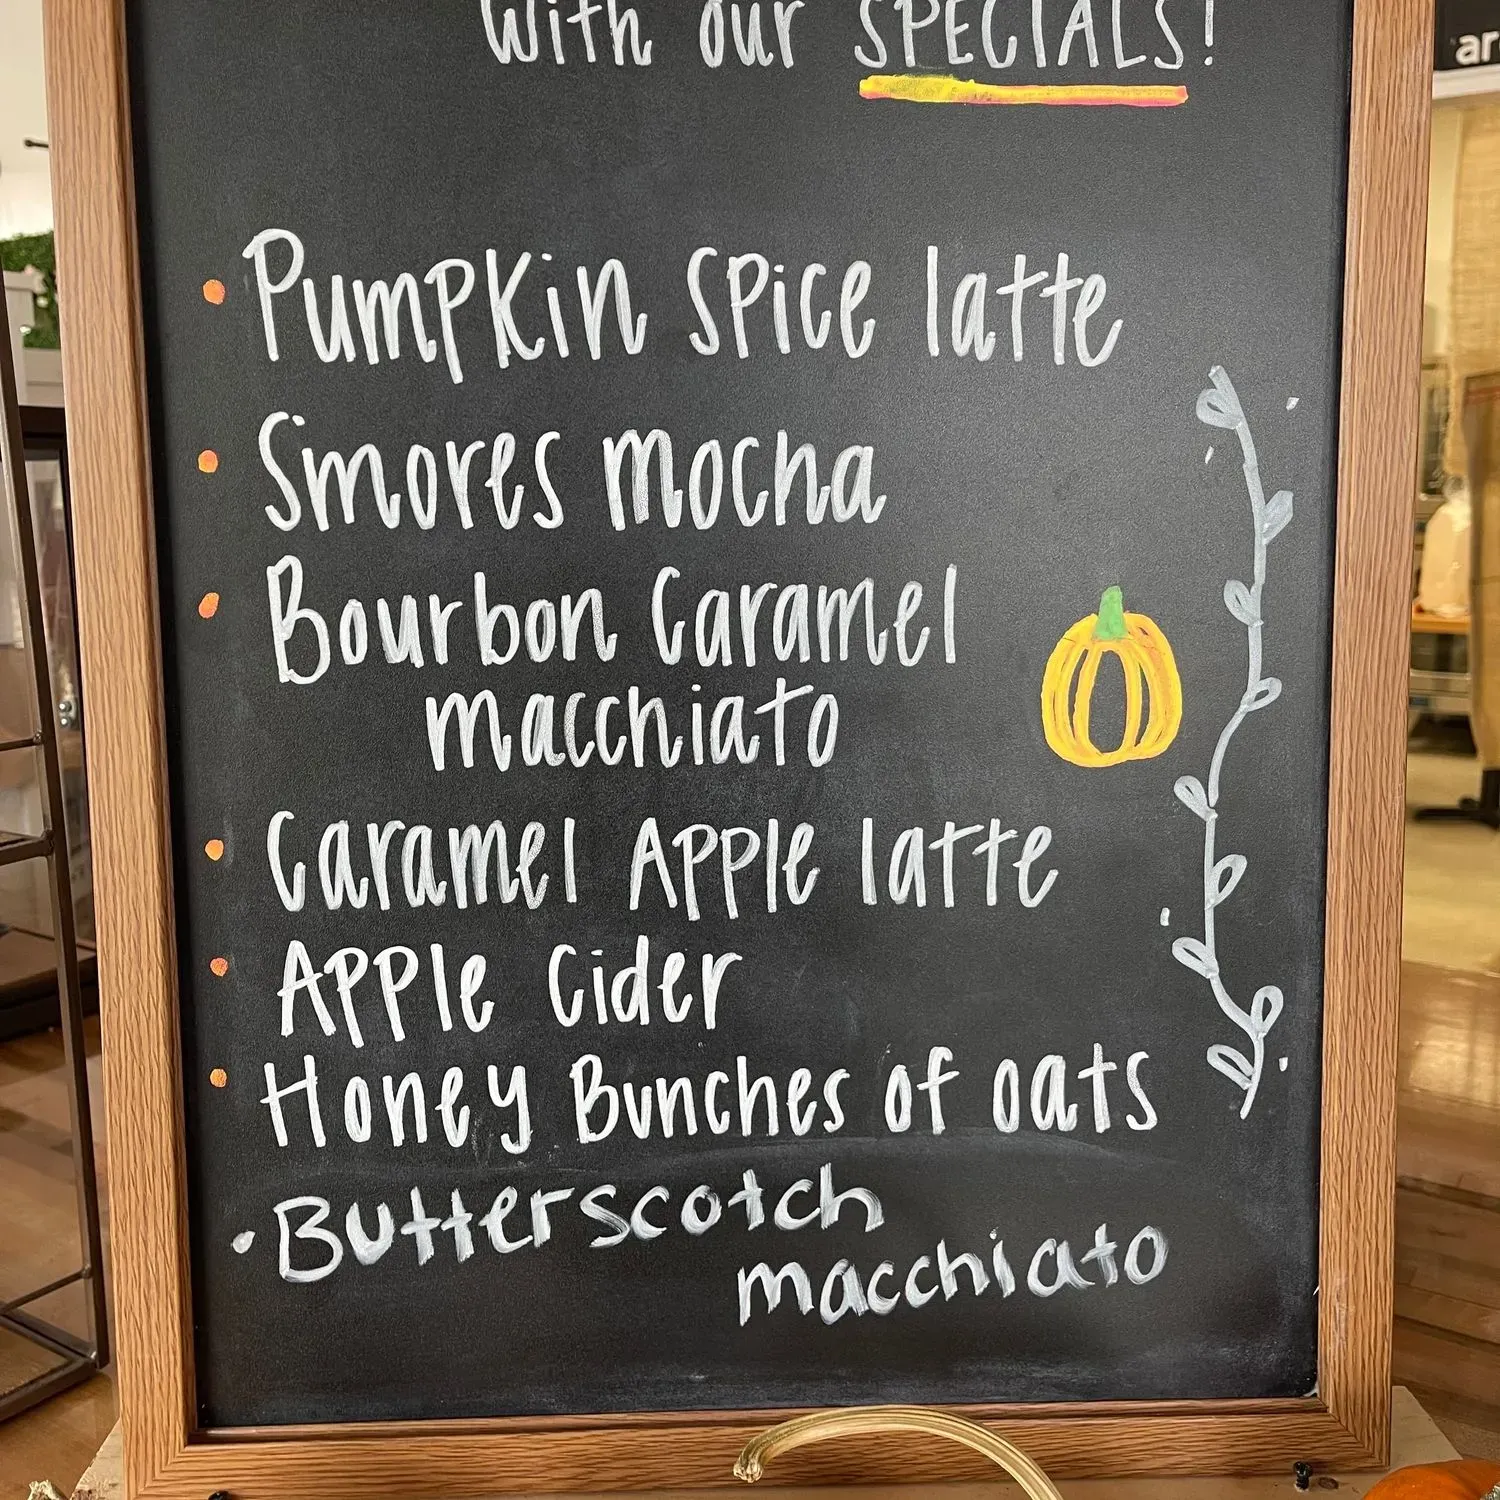 with our SPECIALS!
• Pumpkin Spice latte
• Smores mocha
• Bourbon Caramel
macchiato
• Caramel Apple latte
• Apple Cider
• Honey Bunches of oats
• Butterscotch
macchiato
ar